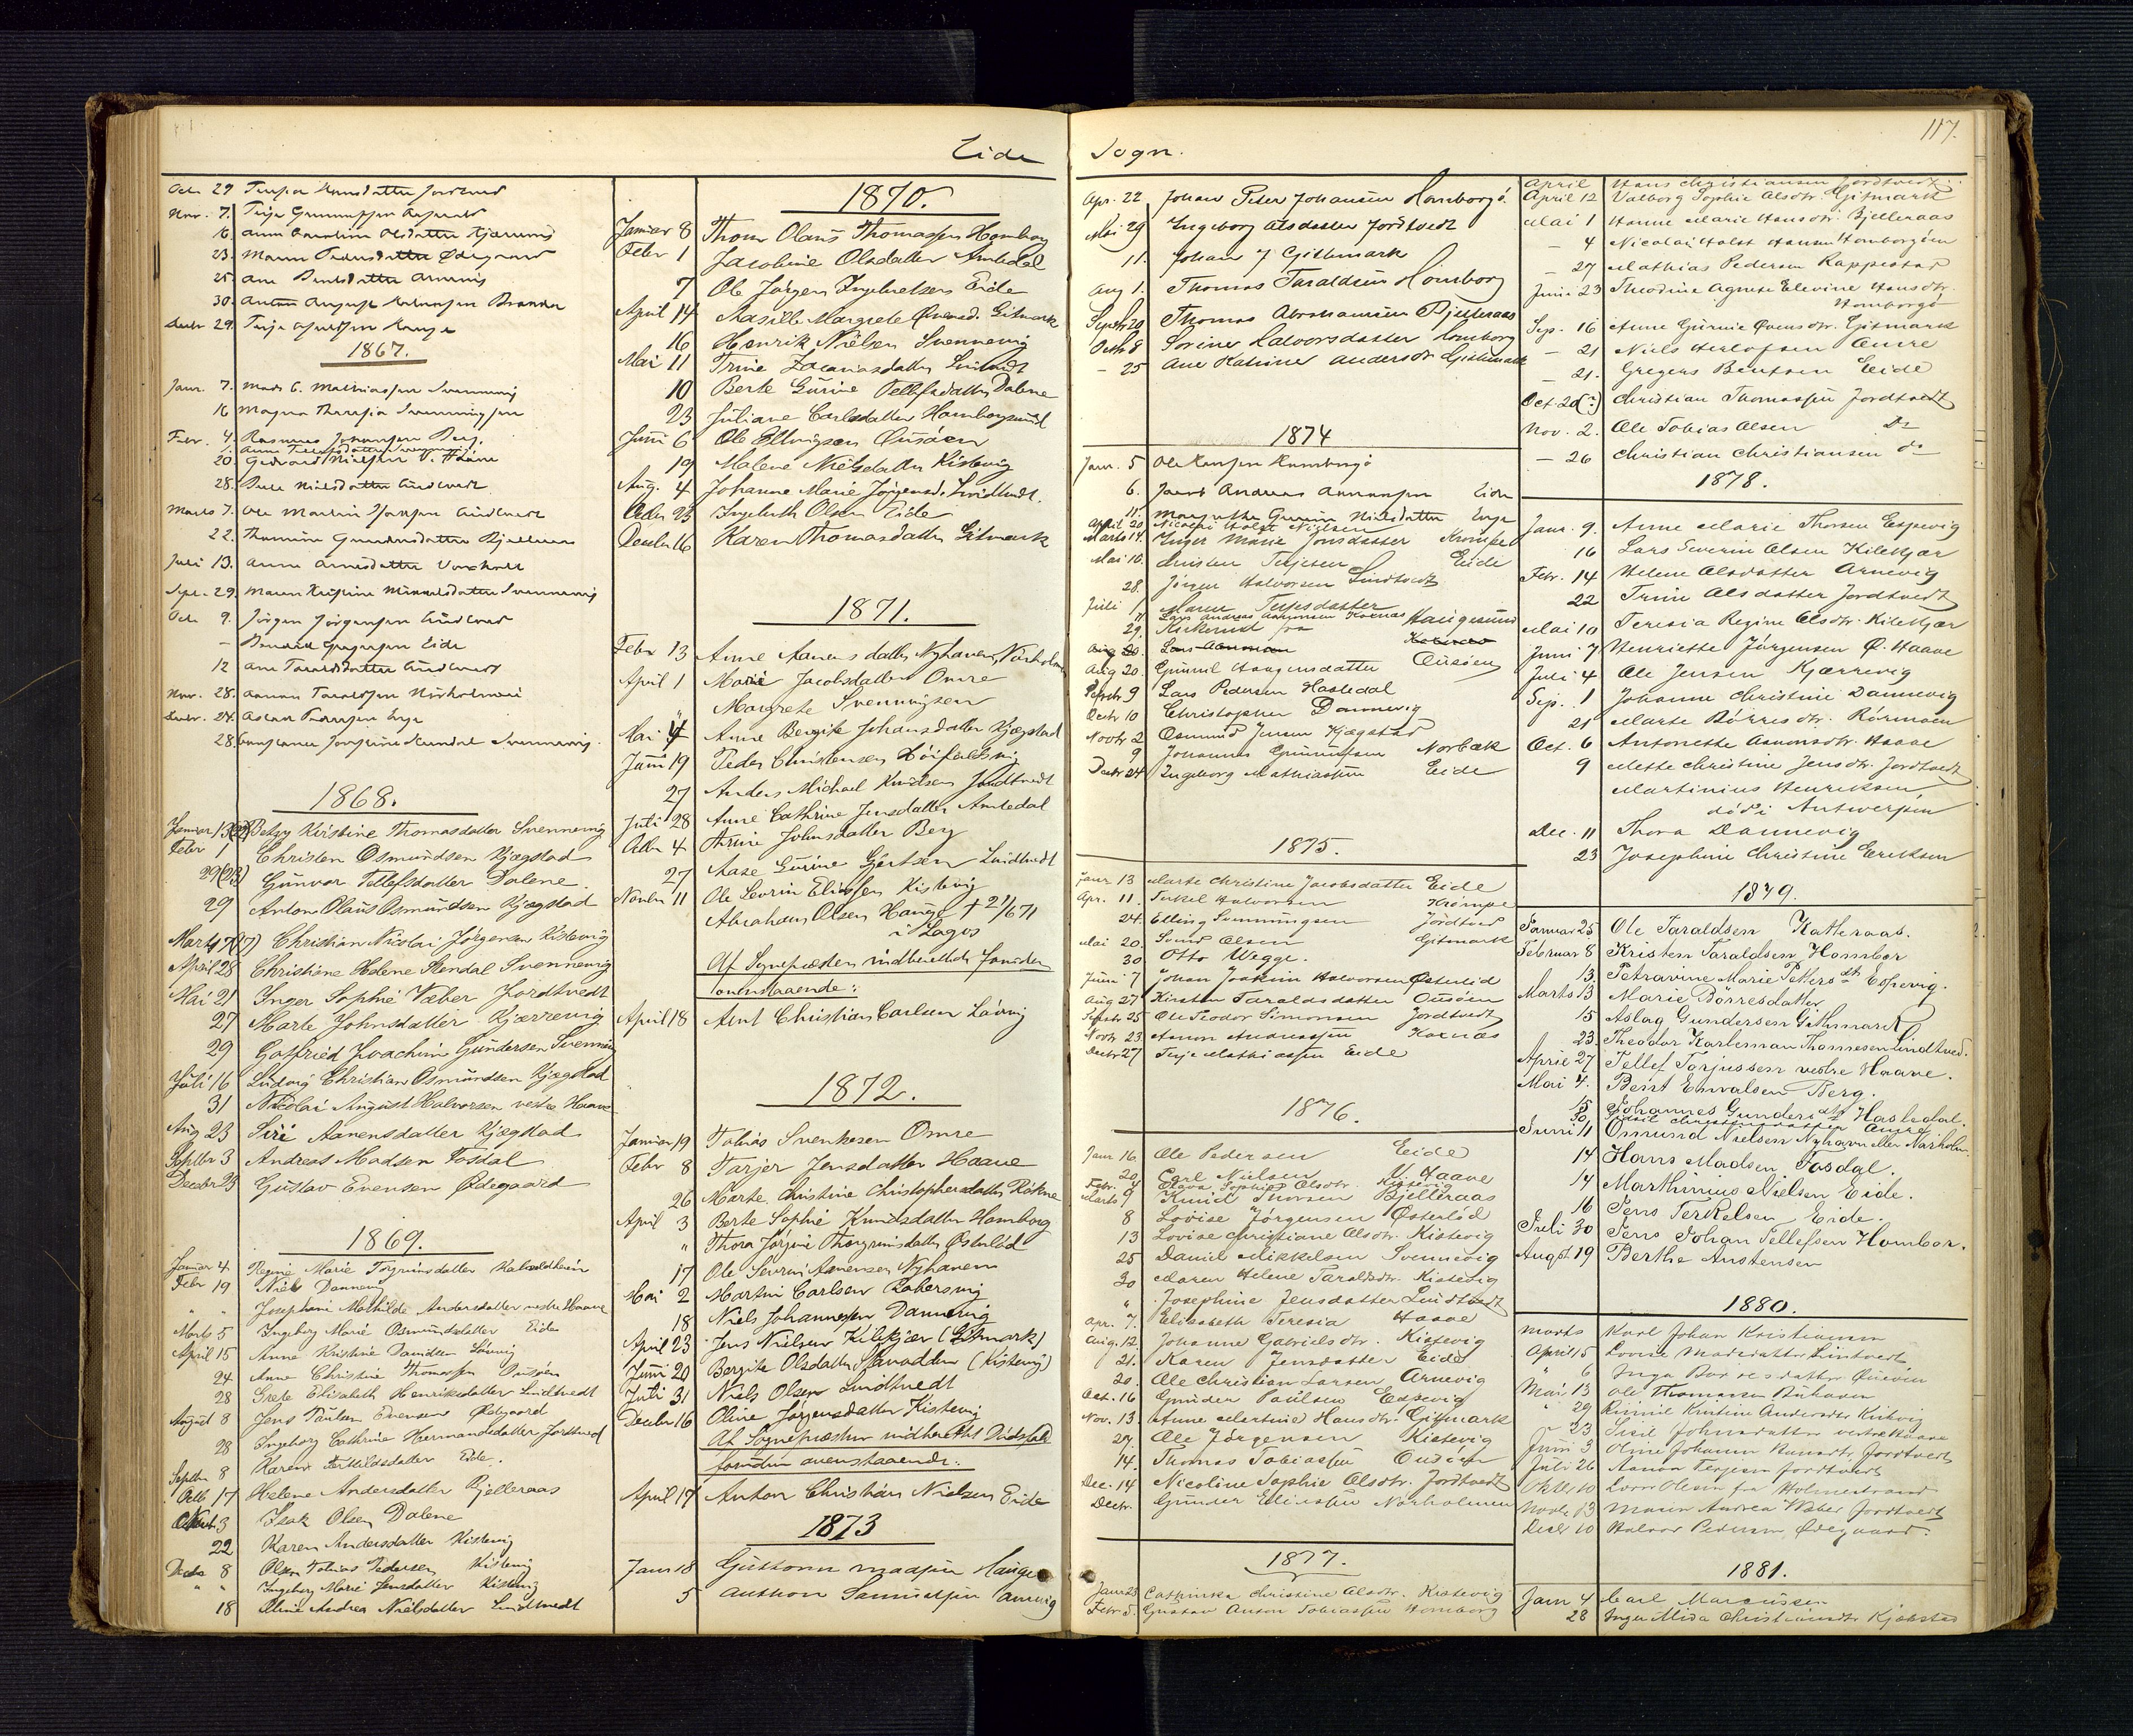 Eide Sogn.
117.
Octr 29 Terjer Hansdatter Jordtved
Nov. 7. Terje Gunnufsen
16 Anna Carolina Olsdatter Kjærrevig
23. Maren Pedersdatter Ødegaard
25. Ane Berntsdatter Arnevig
30. Anton August
Decbr 29. Terje
1867.
Janr. 7. Mads C. Mathiassen Svennevig
16 Magna Theresia Svenningsen
Febr. 4. Rasmus Johansen Berg.
20. Gedvard Nielsen V. Haave
28. Nielsdatter Lindtvedt
Marts 7. Ole Martin Lindtvedt
22. Thomine Gundersdatter Bjelleraas
Juli 13. Anne Arnesdatter
Sept. 29. Maren Kristine Mikkelsdatter Svennevig
Octr 9. Jörgen Jörgensen Lindtved
– Gregersen Eide
12 Ane Taraldsdatter Lindtvedt
Novr. 28. Aanon Taraldsen Nörholmen
Decbr. 24. Aslak Pedersen Enge
28. Josefine Stendal Svennevig.
1868.
Januar 13 Betzy Kirstine Thomasdatter Svennevig
Febr 1 Christen Osmundsen Kjægstad
29(23) Gunvor Tellefsdatter Dalene.
29 Anton Olaus Osmundsen Kjægstad
Marts 7(17) Christian Nicolai Jörgensen Kistevig
April 28 Christine Helene Stendal Svennevig
Mai 21 Inger Sophie Wæber Jordtvedt
27 Marte Johnsdatter Kjærrevig
29 Gotfried Joachim Gundersen Svennevig
Juli 16 Ludvig Christian Osmundsen Kjægstad
31 Nikolai August Halvorsen vestre Haave
Aug 23 Siri Aanensdatter Kjægstad
Septbr 3 Andreas Madsen Tosdal
Decebr 23 Gustav Evensen Ødegaard
1869.
Januar 4 Regine Marie Torgrimsdatter
Febr 19 Niels Dannevig
" " Josephine Mathilde Andersdatter vestre Haave
Marts 5 Ingeborg Marie Osmundsdatter Eide
April 15 Anne Kristine Davidsen Lövvig
24 Anne Christine Thomassen Ousöen
28 Grete Elisabeth Henriksdatter Lindtvedt
August 8 Jens Paulsen Evensen Ødegaard
28 Ingeborg Cathrine Hermandsdatter Jordtved
Septbr 8 Karen Terkildsdatter Eide.
Octb 17 Helene Andersdatter Bjelleraas
3 Isak Olsen Dalene
22 Karen Andersdatter Kistevig
Decbr 8 Olsen Tobias Pedersen Kistevig
" " Ingeborg Marie Jensdatter Kistevig
18 Oline Andrea Nielsdatter Lindtvedt
1870.
Januar 8 Thom Olaus Thomassen Homborg
Febr 1 Jacobine Olsdatter Amtedal
7 Ole Jörgen Ingebretsen Eide
April 14 Aasille Margrete Evensd. Gitmark
16 Henrik Nielsen Svennevig
Mai 11 Trine Zacariasdatter Lindtvedt
10 Berte Gurine Tellefsdatter Dalene
23 Juliane Carlsdatter Homborgsund
Juni 6 Ole Ellingsen Ousöen
19 Malene Nielsdatter Kistevig
Aug. 4 Johanne Marie Jörgensd. Lindtvedt.
Octbr 25 Ingebreth Olsen Eide
Decebr 16 Karen Thomasdatter Gitmark
1871.
Febr 13 Anne Aanensdatter Nyhaven, Nörholmen
April 1 Marie Jacobsdatter Omre
" Margrete Svenningsen
Mai 4 Anne Bergite Johansdatter Kjægstad
Juni 19 Peder Christensen
27 Anders Michael Knudsen Jordtvedt
Juli 28 Anne Cathrine Jensdatter Amtedal
Octbr 4 Trine Johnsdatter Berg
27 Aase Gurine Gjertsen Lindtvedt
Novbr 11 Ole Severin Eliassen Kistevig
Abraham Olsen Hauge † 21/6 71
i Lagos
Af Sognepræsten indberettede forinden
ovenstaaende:
April 18 Arnt Christian Carlsen Lövvig
1872.
Januar 19 Tobias Svenkesen Omre
Febr 8 Tarjer Jensdatter Haave
26 Marte Christine Christophersdatter
April 3 Berte Sophie Knudsdatter Homborg
" Thora Jörgine Thorgrimsdatter Österlöd
17 Ole Severin Aanensen Nyhaven
Mai 2 Martin Carlsen Kobersvig
18 Niels Johannesen Dannevig
April 23 Jens Nielsen Kilekjær (Gitmark)
Juni 20 Bergite Olsdatter Stavodden (Kistevig)
Juli 31 Niels Olsen Lindtvedt
Decebr 16 Oline Jörgensdatter Kistevig
Af Sognepræsten indberettet Dødsfald
forinden ovenstaaende:
April 17 Anton Christian Nielsen Eide
1873
Janr 18 Guttorm Madsen Hauge
5 Anthon Samuelsen Arnevig
Apr. 22 Johan Peter Johansen Homborgö.
Mai 29 Ingeborg Olsdatter Jordtvedt
11. Johan J Gittmark
Aug 1. Thomas Taraldsen Homborg
Septbr 20 Thomas Abrahamsen Bjelleraas
Octbr 8 Sorine Halvorsdatter Homborg
– 25 Ane Katrine Andersdr. Gitmark
1874
Janr. 5 Ole Hansen Homborgö
6. Jacob Andreas Aanonsen Eide
11. Margrethe Gurine Nielsdatter Enge
April 20 Nicolai Holst Nielsen
Marts 14. Inger Marie Jonsdatter Krömpe
Mai 10. Christen Terjesen Eide
28. Jörgen Halvorsen Lindtvedt
Juli 1 Maren Terjesdatter
11 Lars Andreas Aanonsen Haugesund
29. fra
Aug 20. Gunnil Haagensdatter Ousöen
Septbr 9 Lars Pedersen Hasledal
Octbr 10 Christopher Dannevig
Novbr 2 Osmund Jensen Kjægstad
9 Johannes Gunnufsen Norbæk
Decbr 24 Ingeborg Mathiassen Eide
1875.
Janr 13 Marte Christine Jacobsdatter Eide
Apr. 11. Terkel Halvorsen Krömpe
24. Elling Svenningsen Jordtved
Mai 20. Svend Olsen Gitmark
30 Otto Wegge.
Juni 7 Johan Joakim Halvorsen Østerlöd
Aug 27 Kirsten Taraldsdatter Ousöen
Septbr 25 Ole Teodor Simonsen Jordtvedt
Novbr 23. Aanon Andreassen Kaknæs
Decbr 27 Terje Mathiassen Eide
1876.
Janr 16. Ole Pedersen Eide
20 Carl Nielsen V. Haave
Febr. 4 Sophie Olsdtr. Kistevig
Marts 9 Knud Thorsen Bjelleraas
8 Lovise Jörgensen Østerlöd
13 Lovise Christiane Olsdtr. Kistevig
25 Daniel Mikkelsen Svennevig
30 Maren Helene Taraldsdtr. Kistevig
" Josephine Jensdatter Lindtvedt
Apr. 7. Elisabeth Teresia Haave
Aug. 12. Johanne Gabrielsdtr. Kistevig
21. Karen Jensdatter Eide
20. Ole Christian Larsen Arnevig
Oct. 16 Gunder Paulsen Espevig
Nov. 13. Anne Martine Hansdtr. Gitmark
27. Ole Jörgensen Kistevig
14. Thomas Tobiassen Ousöen
Dec. 14 Nicoline Sophie Olsdtr. Jordtvedt
Decbr. Gunder Eliassen Nörholmen
1877.
Janr 23 Cathinka Christine Olsdtr. Kistevig
Febr 5. Gustav Anton Tobiassen Homborg
April Hans Christiansen Jordtvedt.
April 12 Valborg Sophie Olsdtr. Gitmark
Mai 1 Hanne Marie Hansdtr. Bjelleraas
– 4 Nicolai Holst Hansen Homborgöen
– 27 Mathias Pedersen Rappestad
Juni 23 Theodine Agnete Elevine Hansdtr.
Homborgö
Sep. 16 Anne Gurine Evensdtr. Gitmark
– 21 Niels Herlofsen Omre
– 21. Gregers Bentsen Eide
Oct. 20(?) Christian Thomassen Jordtvedt
Nov. 2. Ole Tobias Olsen Do
– 26 Christian Christiansen do
1878.
Janr. 9. Anne Marie Thorsen Espevig
16 Lars Severin Olsen Kilekjær
Febr. 14 Helene Olsdatter Arnevig
22 Trine Olsdatter Jordtvedt
Mai 10 Teresia Regine Olsdtr. Kilekjær
Juni 7 Henriette Jörgensen Ø. Haave
Juli 4 Ole Jensen Kjærrevig
Sep. 1 Johanne Christine Dannevig
21 Marte Börresdtr. Rörmoen
Oct. 6 Antonette Aanonsdtr. Haave
9 Mette Christine Jensdtr. Jordtvedt
Martinius Henriksen
död i Antwerpen
Dec. 11 Thora Dannevig
23 Josephine Christine Eriksen
1879.
Januar 25 Ole Taraldsen Katteraas.
Februar 8 Kristen Taraldsen Hombor
13. Petravine Marie Petersdtr Espevig.
Marts 13 Marie Börresdatter
15 Aslag Gundersen Githmark
23. Theodor Karleman Thomesen Lindtved.
April 27 Tellef Torjussen vestre Haave.
Mai 4. Bent Envalsen Berg.
15 Johannes Gundersdtr Hasledal.
30 Sissil Christensdatter Omre
Juni 11 Osmund Nielsen Nyhavn eller Narholm.
14 Hans Madsen Tosdal.
14 Marthinius Nielsen Eide.
16 Jens Terkelsen Eide.
Juli 30 Jens Johan Tellefsen Hombor.
Augst 19 Berthe Austensen
1880.
Marts Karl Johan Kristiansen
April 5 Lovise Madsdatter Lintvedt
" 6 Inga Börresdatter Ousöen
Mai 13 Ole Thomassen
" 29 Kristine Andersdtr Kistevig
" 23 Sissil Johnsdatter vestre Haave
Juni 3 Oline Johanne Jordtvedt
Juli 26 Aanon Terjesen Jordtvedt
Oktbr 10 Lovise Olsen fra Holmestrand
Novbr 13 Maren Andrea Wæber Jordtvedt
Decbr 10 Halvor Pedersen Ødegaard.
1881.
Janr 4 Carl Marcussen
28 Inger Mida Christiansdtr Kjæbstad